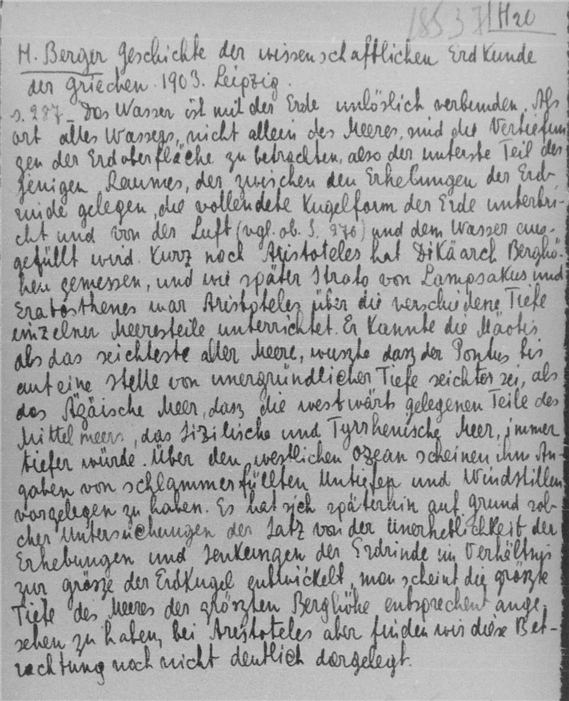 18537 H20
H. Berger Geschichte der wissenschaftlichen Erdkunde
der Griechen. 1903. Leipzig.
S. 287 – Das Wasser ist mit der Erde unlöslich verbunden. Als
Ort alles Wassers, nicht allein des Meeres, sind die Vertiefun
gen der Erdoberfläche zu betrachten, also der unterste Teil des
jenigen Raumes, der zwischen den Erhebungen der Erd-
rinde gelegen, die vollendete Kugelform der Erde unterbri-
cht und von der Luft (vgl. ob. S. 276) und dem Wasser aus-
gefüllt wird. Kurz nach Aristoteles hat Dikäarch Berghö-
hen gemessen, und wie später Strato von Lampsakus und
Eratosthenes war Aristoteles über die verschiedene Tiefe
einzelner Meeresteile unterrichtet. Er kannte die Mäotis
als das seichteste aller Meere, wuszte dasz der Pontus bis
auf eine Stelle von unergründlicher Tiefe seichter sei, als
das Ägäische Meer, dasz die westwärts gelegenen Teile des
Mittelmeers, das Sizilische und Tyrrhenische Meer, immer
tiefer würde. Über den westlichen Ozean scheinen ihm An-
gaben von schlammerfüllten Untiefen und Windstillen
vorgelegen zu haben. Es hat sich späterhin auf Grund sol-
cher Untersuchungen der Satz von der Unerheblichkeit der
Erhebungen und Senkungen der Erdrinde im Verhältnis
zur Grösze der Erdkugel entwickelt, man scheint die gröszte
Tiefe des Meeres der gröszten Berghöhe entsprechent ange
sehen zu haben, bei Aristoteles aber finden wir diese Bet-
rachtung noch nicht deutlich dargelegt.